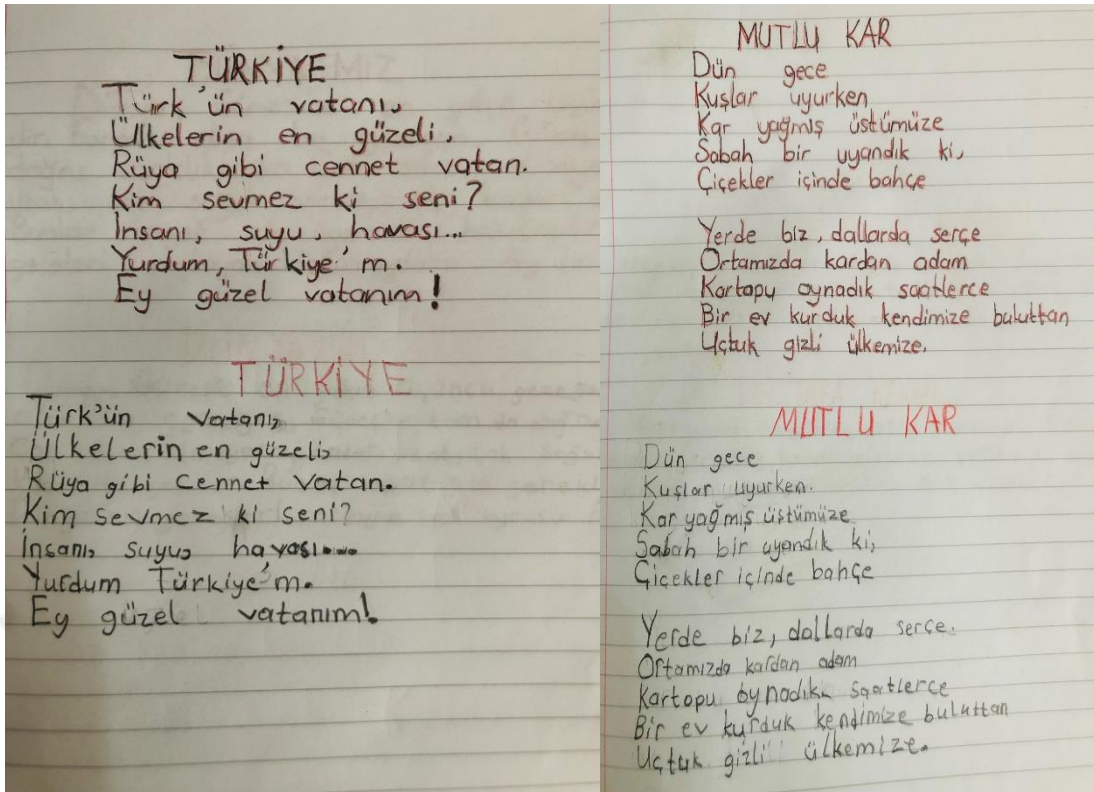 TÜRKİYE
Türk'ün vatanı,
Ülkelerin en güzeli,
Rüya gibi cennet vatan.
Kim sevmez ki seni?
İnsanı, suyu, havası...
Yurdum, Türkiye'm.
Ey güzel vatanım!
TÜRKİYE
Türk'ün vatanı,
Ülkelerin en güzeli,
Rüya gibi cennet vatan.
Kim sevmez ki seni?
İnsanı, suyu, havası....
Yurdum Türkiye'm.
Ey güzel vatanım!
MUTLU KAR
Dün gece
Kuşlar uyurken
Kar yağmış üstümüze
Sabah bir uyandık ki,
Çiçekler içinde bahçe
Yerde biz, dallarda serçe
Ortamızda kardan adam
Kartopu oynadık saatlerce
Bir ev kurduk kendimize buluttan
Uçtuk gizli ülkemize.
MUTLU KAR
Dün gece
Kuşlar uyurken.
Kar yağmış üstümüze
Sabah bir uyandık ki,
Çiçekler içinde bahçe
Yerde biz, dallarda serçe.
Ortamızda kardan adam
Kartopu oynadık saatlerce
Bir ev kurduk kendimize buluttan
Uçtuk gizli ülkemize.